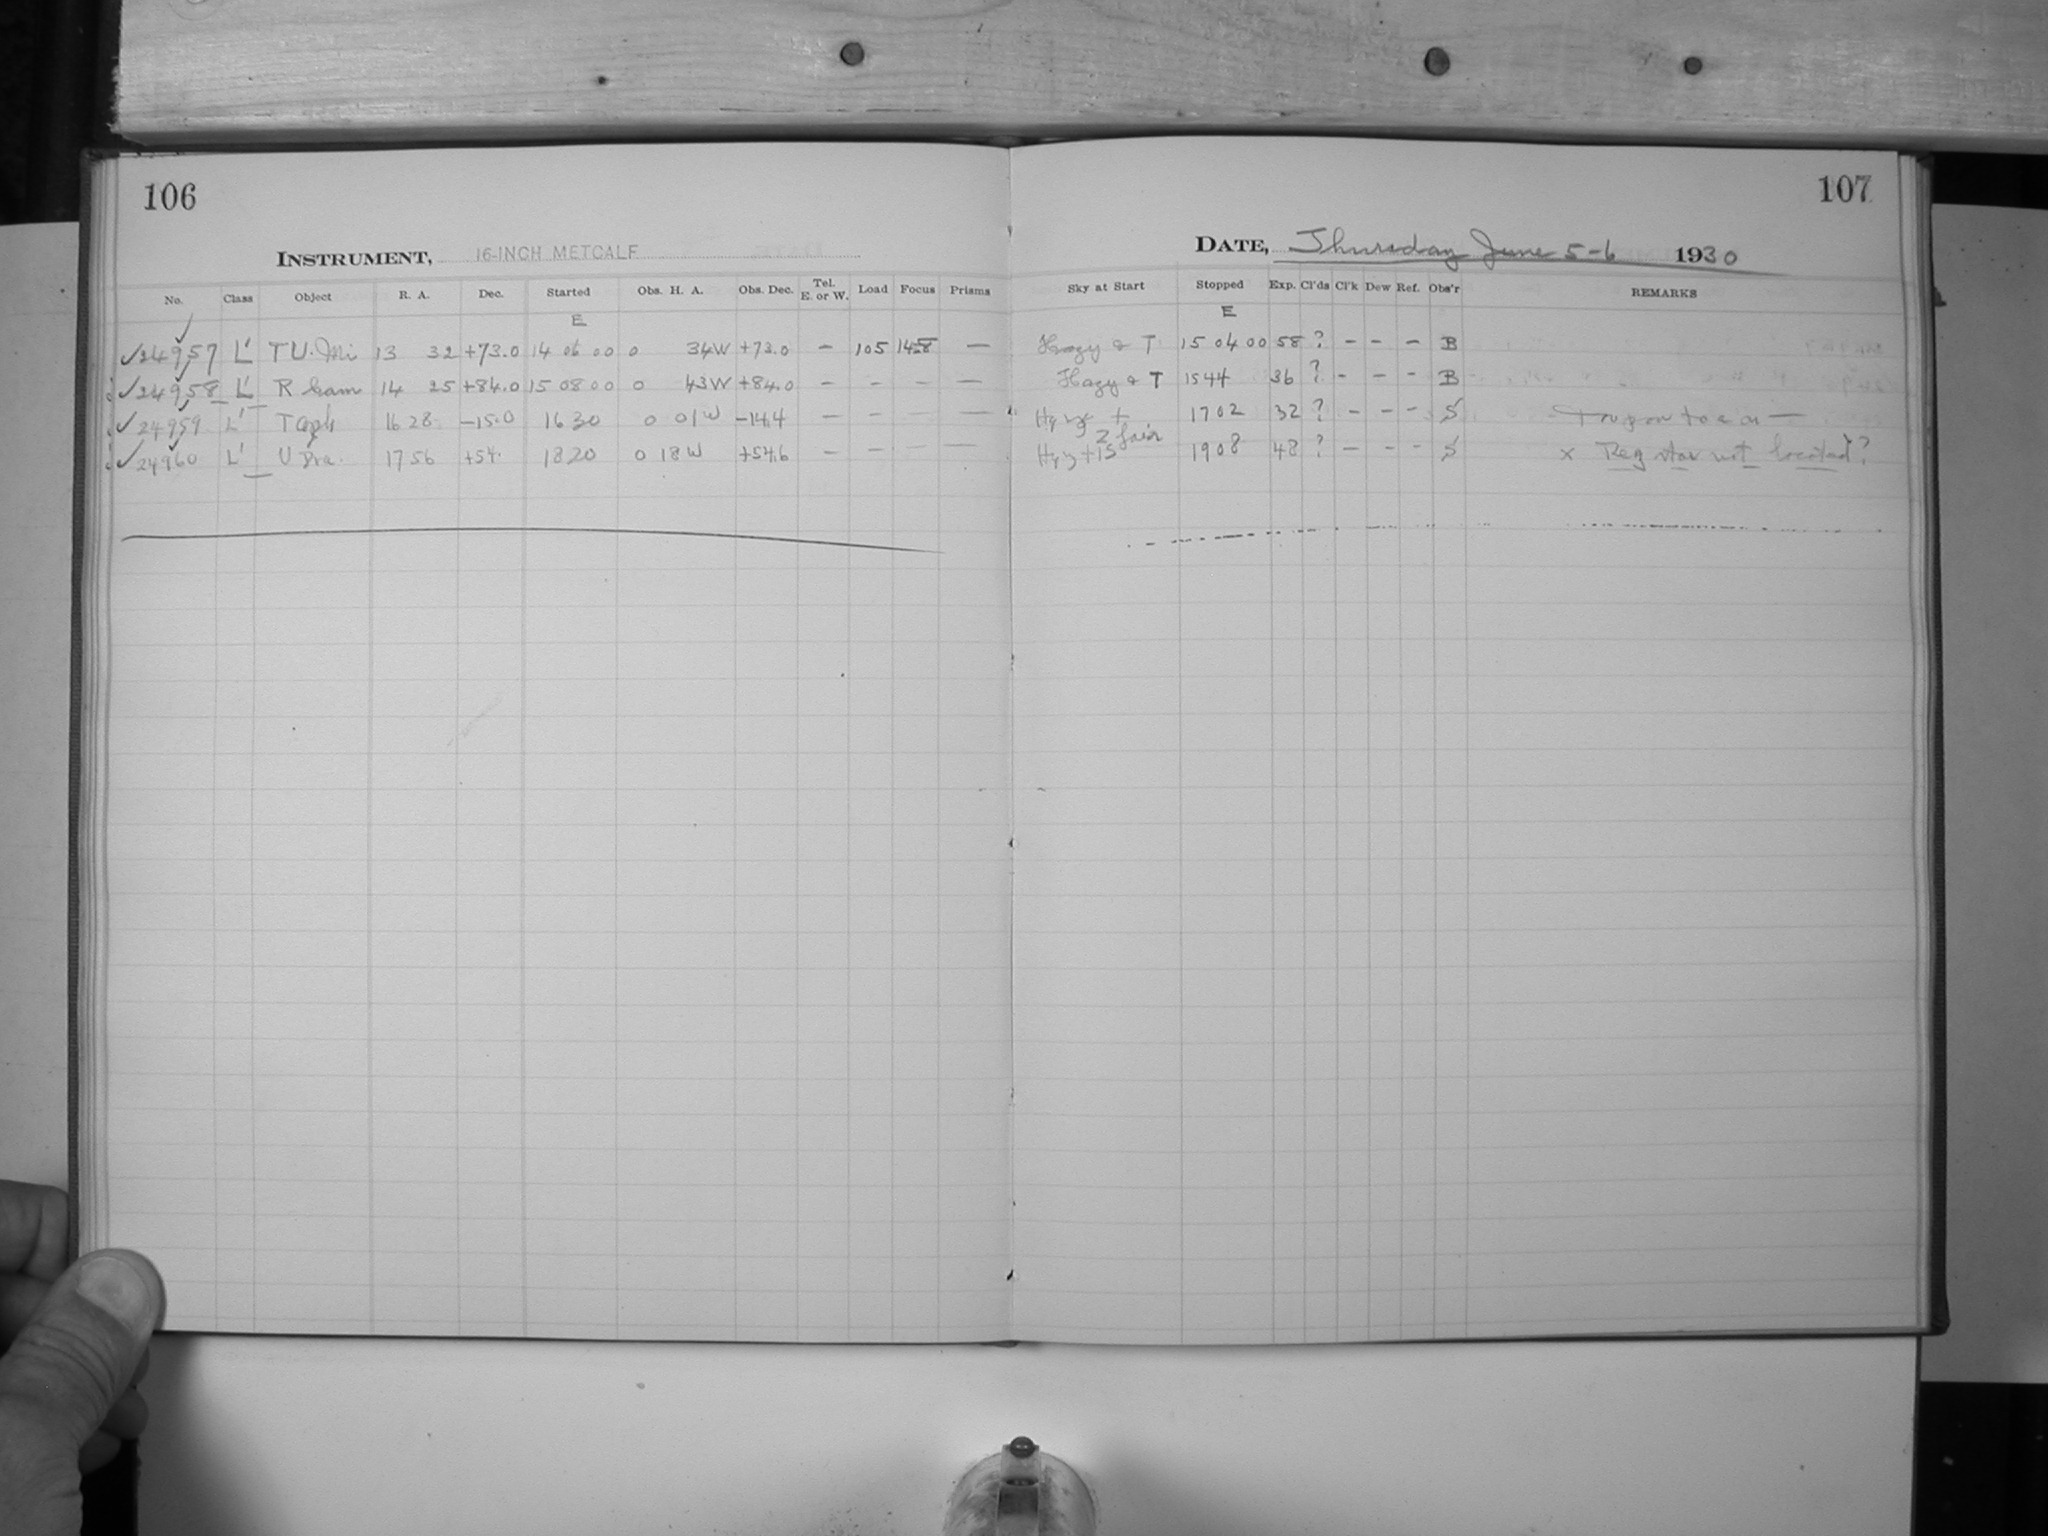 106
107
INSTRUMENT, 16-INCH METCALF
DATE, Thursday June 5-6 1930
No. Class Object R. A. Dec. Started Obs. H. A. Obs. Dec. Tel. E. or W. Load Focus Prisms Sky at Start Stopped Exp. Cl'ds Cl'k Dew Ref. Obs'r REMARKS
E E
✓24957 L' T U. Mi 13 32 +73.0 14 06 00 0 34W +73.0 — 105 14.8 — Hazy & T 15 04 00 58 ? - - - B
✓24958 L' R Cam 14 25 +84.0 15 08 00 0 43W +84.0 - - - — Hazy & T 1544 36 ? - - - B
✓24959 L' T Oph 16 28 -15.0 16 30 0 01W -14.4 — - — 1702 32 ? - - - S
✓24960 L' U Dra. 17 56 +54. 18 20 0 18 W +54.6 — - — 2 fair 1908 48 ? - - - S x Reg star not located?